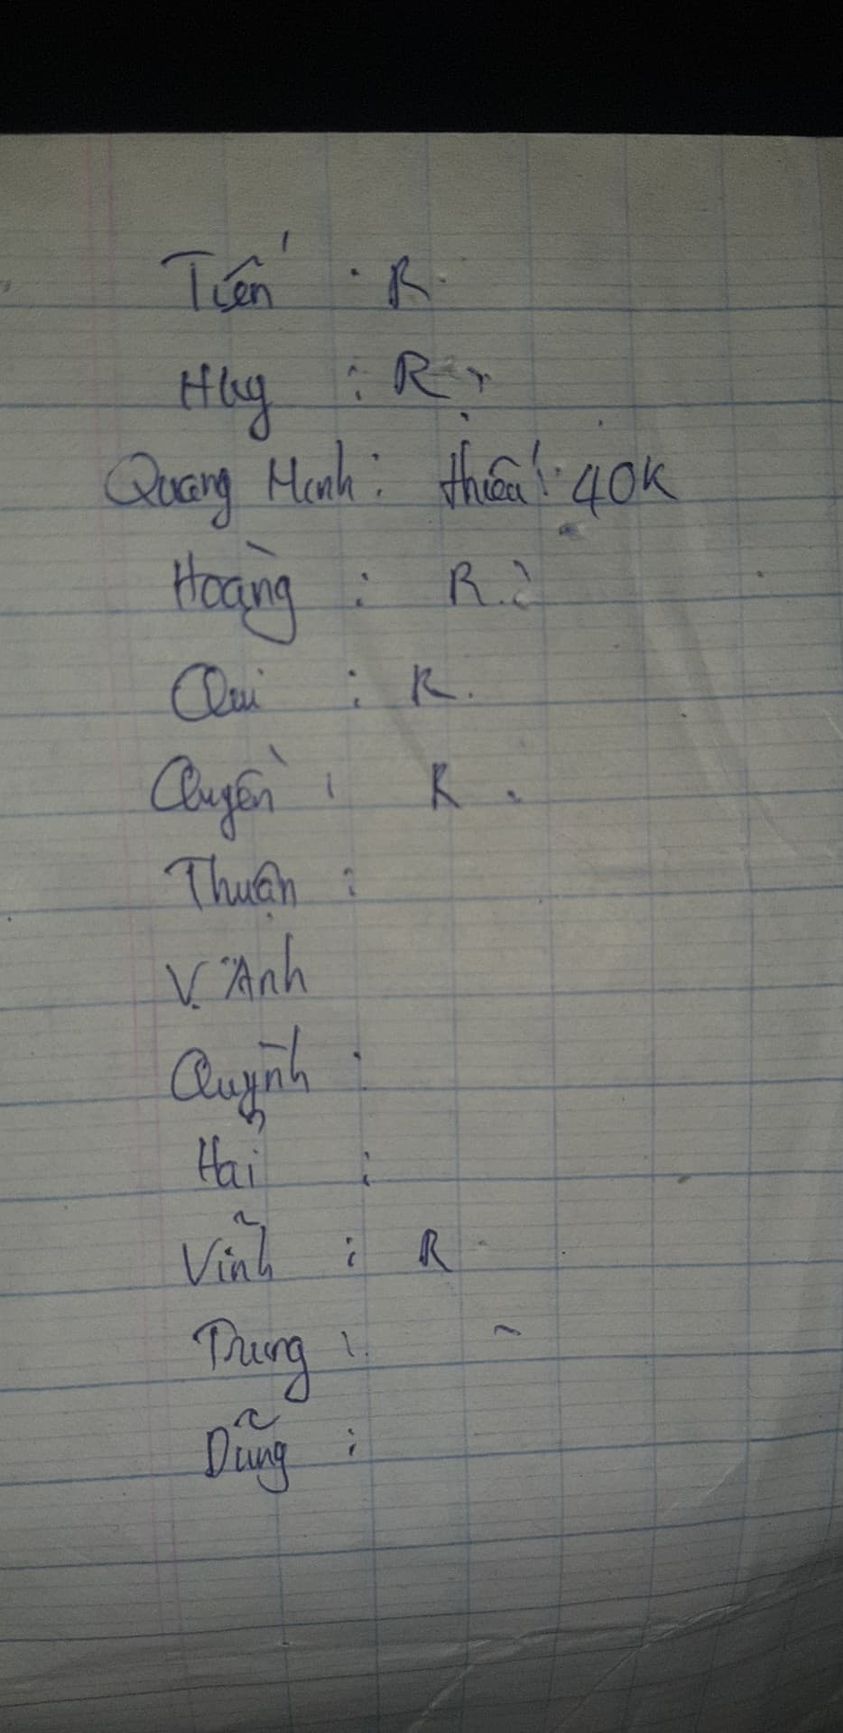 Tiến : R.
Huy : R
Quang Minh : thiếu : 40K
Hoàng : R.
Qui : R.
Quyền : R.
Thuận :
V. Anh
Quỳnh :
Hải :
Vĩnh : R
Trung :
Dũng :